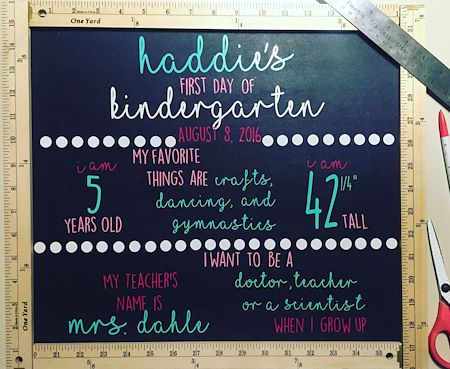 One Yard
haddie's
FIRST DAY OF
kindergarten
AUGUST 8, 2016
i am
5
YEARS OLD
MY FAVORITE
THINGS ARE crafts,
dancing, and
gymnastics
i am
42 1/4"
TALL
MY TEACHER'S
NAME IS
mrs. dahle
I WANT TO BE A
doctor, teacher
or a scientist
WHEN I GROW UP
One Yard